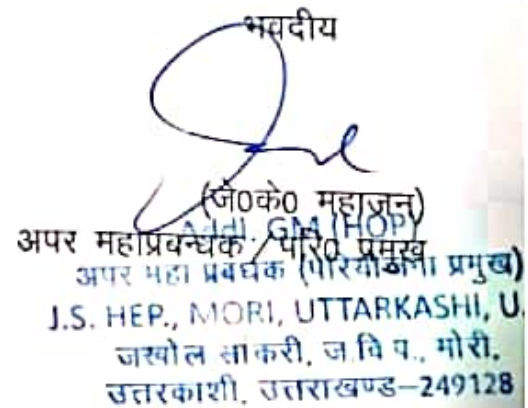 भवदीय
(जे०के० महाजन)
Addl. GM (HOP)
अपर महाप्रबन्धक / परि० प्रमुख
अपर महा प्रबंधक (परियोजना प्रमुख)
J.S. HEP., MORI, UTTARKASHI, U.
जखोल सांकरी, ज.वि.प., मोरी,
उत्तरकाशी, उत्तराखण्ड–249128